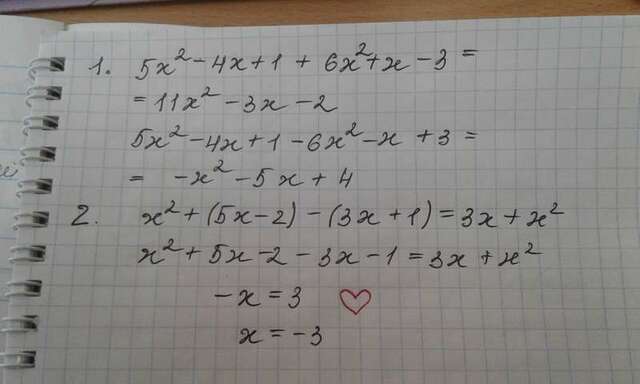 1. 5x² - 4x + 1 + 6x² + x - 3 =
= 11x² - 3x - 2
5x² - 4x + 1 - 6x² - x + 3 =
= -x² - 5x + 4
2. x² + (5x - 2) - (3x + 1) = 3x + x²
x² + 5x - 2 - 3x - 1 = 3x + x²
-x = 3 ♡
x = -3